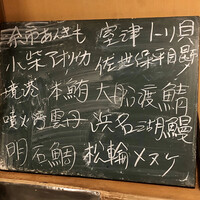 余市あんきも 室津トリ貝
小柴アオリイカ 佐世保平目
境港本鮪 大船渡鯖
噴火湾雲丹 浜名湖鰻
明石鯛 松輪メヌケ